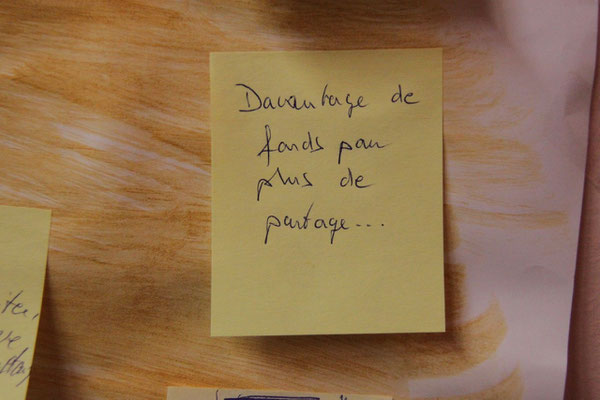 Davantage de
fonds pour
plus de
partage...